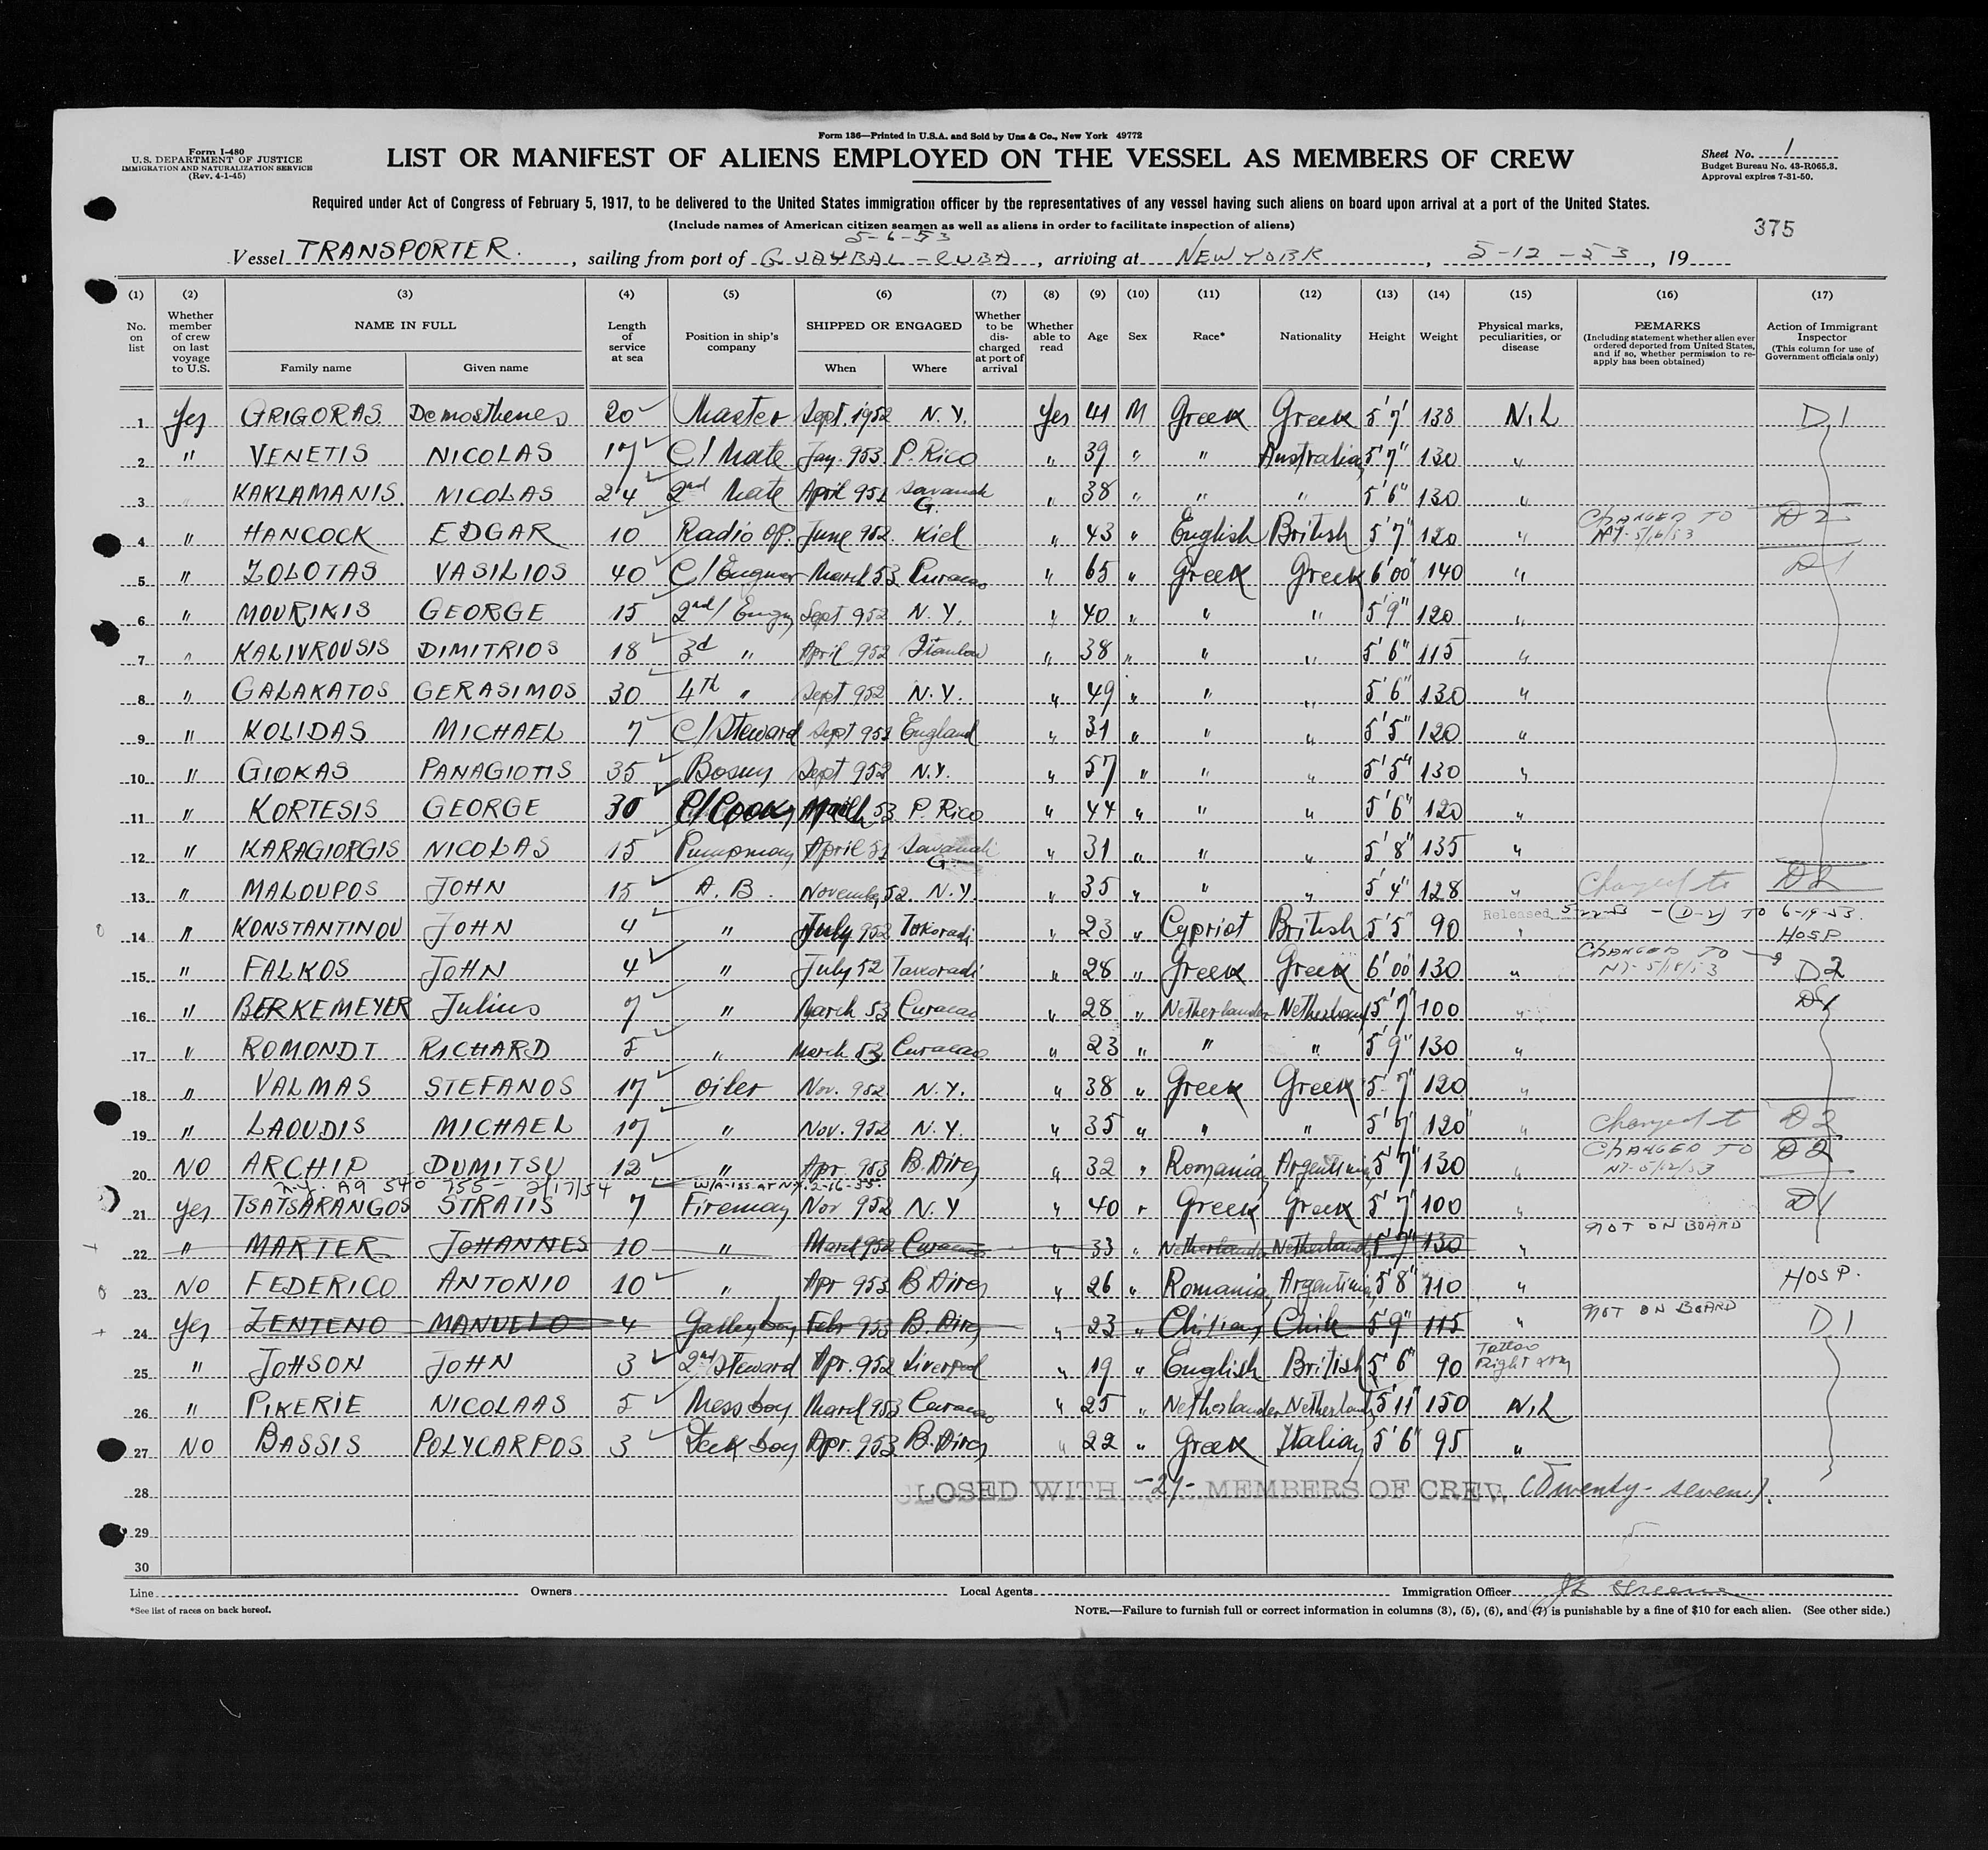 Form 136—Printed in U.S.A. and Sold by Unz & Co., New York 49772
Form I-480
U.S. DEPARTMENT OF JUSTICE
IMMIGRATION AND NATURALIZATION SERVICE
(Rev. 4-1-45)
LIST OR MANIFEST OF ALIENS EMPLOYED ON THE VESSEL AS MEMBERS OF CREW
Sheet No. 1
Budget Bureau No. 43-R065.3.
Approval expires 7-31-50.
Required under Act of Congress of February 5, 1917, to be delivered to the United States immigration officer by the representatives of any vessel having such aliens on board upon arrival at a port of the United States.
(Include names of American citizen seamen as well as aliens in order to facilitate inspection of aliens)
375
5-6-53
Vessel TRANSPORTER. , sailing from port of GUAYBAL - CUBA , arriving at NEW YORK , 5-12-53 , 19
(1) (2) (3) (4) (5) (6) (7) (8) (9) (10) (11) (12) (13) (14) (15) (16) (17)
No. on list
Whether member of crew on last voyage to U.S.
NAME IN FULL
Family name Given name
Length of service at sea
Position in ship's company
SHIPPED OR ENGAGED
When Where
Whether to be discharged at port of arrival
Whether able to read
Age
Sex
Race*
Nationality
Height
Weight
Physical marks, peculiarities, or disease
REMARKS
(Including statement whether alien ever ordered deported from United States, and if so, whether permission to reapply has been obtained)
Action of Immigrant Inspector
(This column for use of Government officials only)
1 Yes GRIGORAS Demosthenes 20 Master Sept. 1952 N.Y. Yes 41 M Greek Greek 5'7' 138 NiL D1
2 " VENETIS NICOLAS 17 C/Mate Jan. 953 P. Rico " 39 " " Australian 5'7" 130 "
3 " KAKLAMANIS. NICOLAS 24 2nd Mate April 951 Savanah G. " 38 " " " 5'6" 130 "
4 " HANCOCK EDGAR 10 Radio OP. June 952 Kiel " 43 " English British 5'7" 120 " CHANGED TO D2
5 " ZOLOTAS VASILIOS 40 C/Engineer March 53 Curacao " 65 " Greek Greek 6'00" 140 " D1
6 " MOURIKIS GEORGE 15 2nd/Engin Sept 952 N.Y. " 40 " " " 5'9" 120 "
7 " KALIVROUSIS DIMITRIOS 18 3d " April 952 " 38 " " " 5'6" 115 "
8 " GALAKATOS GERASIMOS 30 4th " Sept 952 N.Y. " 49 " " " 5'6" 130 "
9 " KOLIDAS MICHAEL 7 C/Steward Sept 951 England " 31 " " " 5'5" 120 "
10 " GIOKAS PANAGIOTIS 35 Bosun Sept 952 N.Y. " 57 " " " 5'5" 130 "
11 " KORTESIS GEORGE 30 C/Cook 53 P. Rico " 44 " " " 5'6" 120 "
12 " KARAGIORGIS NICOLAS 15 Pumpman April 51 Savanah G. " 31 " " " 5'8" 135 "
13 " MALOUPOS JOHN 15 A.B. November 52. N.Y. " 35 " " " 5'4" 128 " Changed to D2
Released 5-22-53 - (D-2) TO 6-19-53.
14 " KONSTANTINOU JOHN 4 " July 952 Takoradi " 23 " Cypriot British 5'5" 90 " HOSP
15 " FALKOS JOHN 4 " July 52 Tacoradi " 28 " Greek Greek 6'00" 130 " CHANGED TO NY- 5/18/53 D2
16 " BERKEMEYER Julius 7 " March 53 Curacao " 28 " Netherlander Netherland 5'7" 100 " D1
17 " ROMONDT RICHARD 5 " March 53 Curacao " 23 " " 5'9" 130 "
18 " VALMAS STEFANOS 17 oiler Nov. 952 N.Y. " 38 " Greek Greek 5'7" 120 "
19 " LAOUDIS MICHAEL 17 " Nov. 952 N.Y. " 35 " " " 5'7" 120" " Changed to D2
20 NO ARCHIP DUMITSU 12 " Apr. 953 B. Aires " 32 " Romanian Argentinia 5'7" 130 " CHANGED TO NY- 5/12/53 D2
N.Y. A9 540 755- 2/17/54 W/A-ISS. AT N.Y. 2-16-55.
21 Yes TSATSARANGOS STRATIS 7 Fireman Nov 952 N.Y " 40 " Greek Greek 5'7" 100 " D1
22 " MARTER JOHANNES 10 " March 952 Curacao " 33 " Netherlander Netherland 5'7" 130 " NOT ON BOARD
23 NO FEDERICO ANTONIO 10 " Apr 953 B Aires " 26 " Romanian Argentinia 5'8" 110 " HOSP.
24 Yes ZENTENO MANUELO 4 Galley boy Febr 953 B. Aires " 23 " Chilian Chile 5'9" 115 " NOT ON BOARD D1
25 " JOHSON JOHN 3 2nd Steward Apr. 952 Liverpool " 19 " English British 5'6" 90 Tattoo Right arm
26 " PIKERIE NICOLAAS 5 Mess boy March 953 Curacao " 25 " Netherlander Netherland 5'11" 150 NiL
27 NO BASSIS POLYCARPOS 3 Deck boy Apr. 953 B. Aires " 22 " Greek Italian 5'6" 95 "
28 CLOSED WITH -27- MEMBERS OF CREW (Twenty-seven).
29
30
Line Owners Local Agents Immigration Officer
*See list of races on back hereof.
NOTE.—Failure to furnish full or correct information in columns (3), (5), (6), and (7) is punishable by a fine of $10 for each alien. (See other side.)